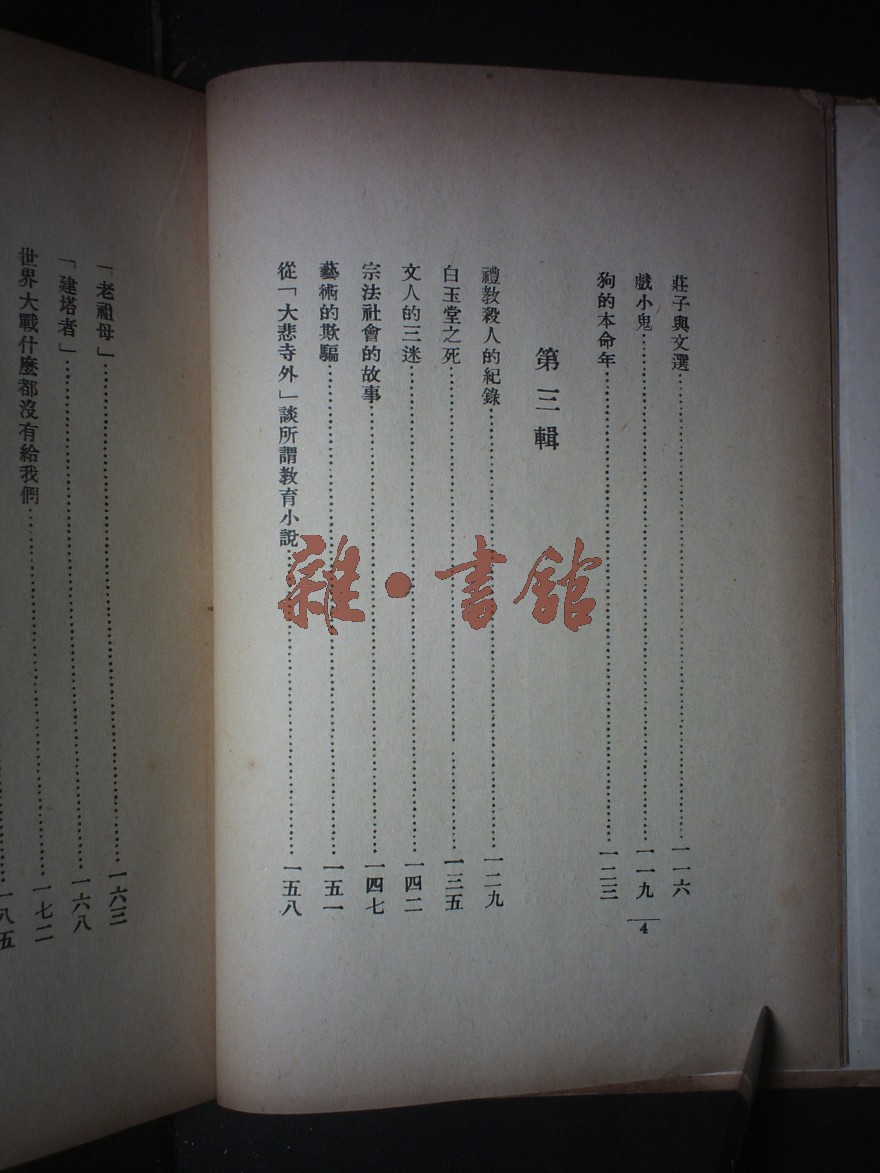 莊子與文選……一一六
戲小鬼……一一九
狗的本命年……一二三
第三輯
禮教殺人的紀錄……一二九
白玉堂之死……一三五
文人的三迷……一四二
宗法社會的故事……一四七
藝術的欺騙……一五一
從「大悲寺外」談所謂教育小說……一五八
4
「老祖母」……一六三
「建塔者」……一六八
世界大戰什麼都沒有給我們……一七二
……一八五
雜·書館